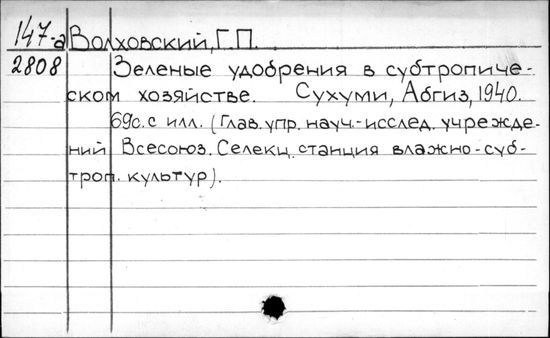 147-а Волховский, Г.П.
2808 Зеленые удобрения в субтропиче-
ском хозяйстве. Сухуми, Абгиз, 1940.
69с. с илл. (Глав. упр. науч.-исслед. учрежде-
ний Всесоюз. Селекц. станция влажно-суб-
троп. культур).